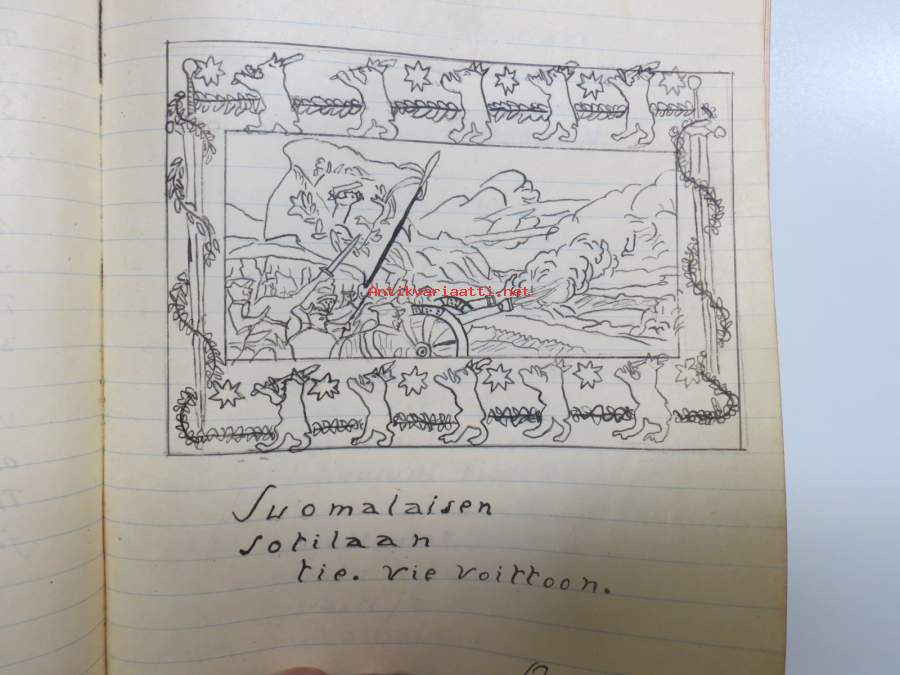 Antikvariaatti.net
Suomalaisen
sotilaan
tie. vie voittoon.